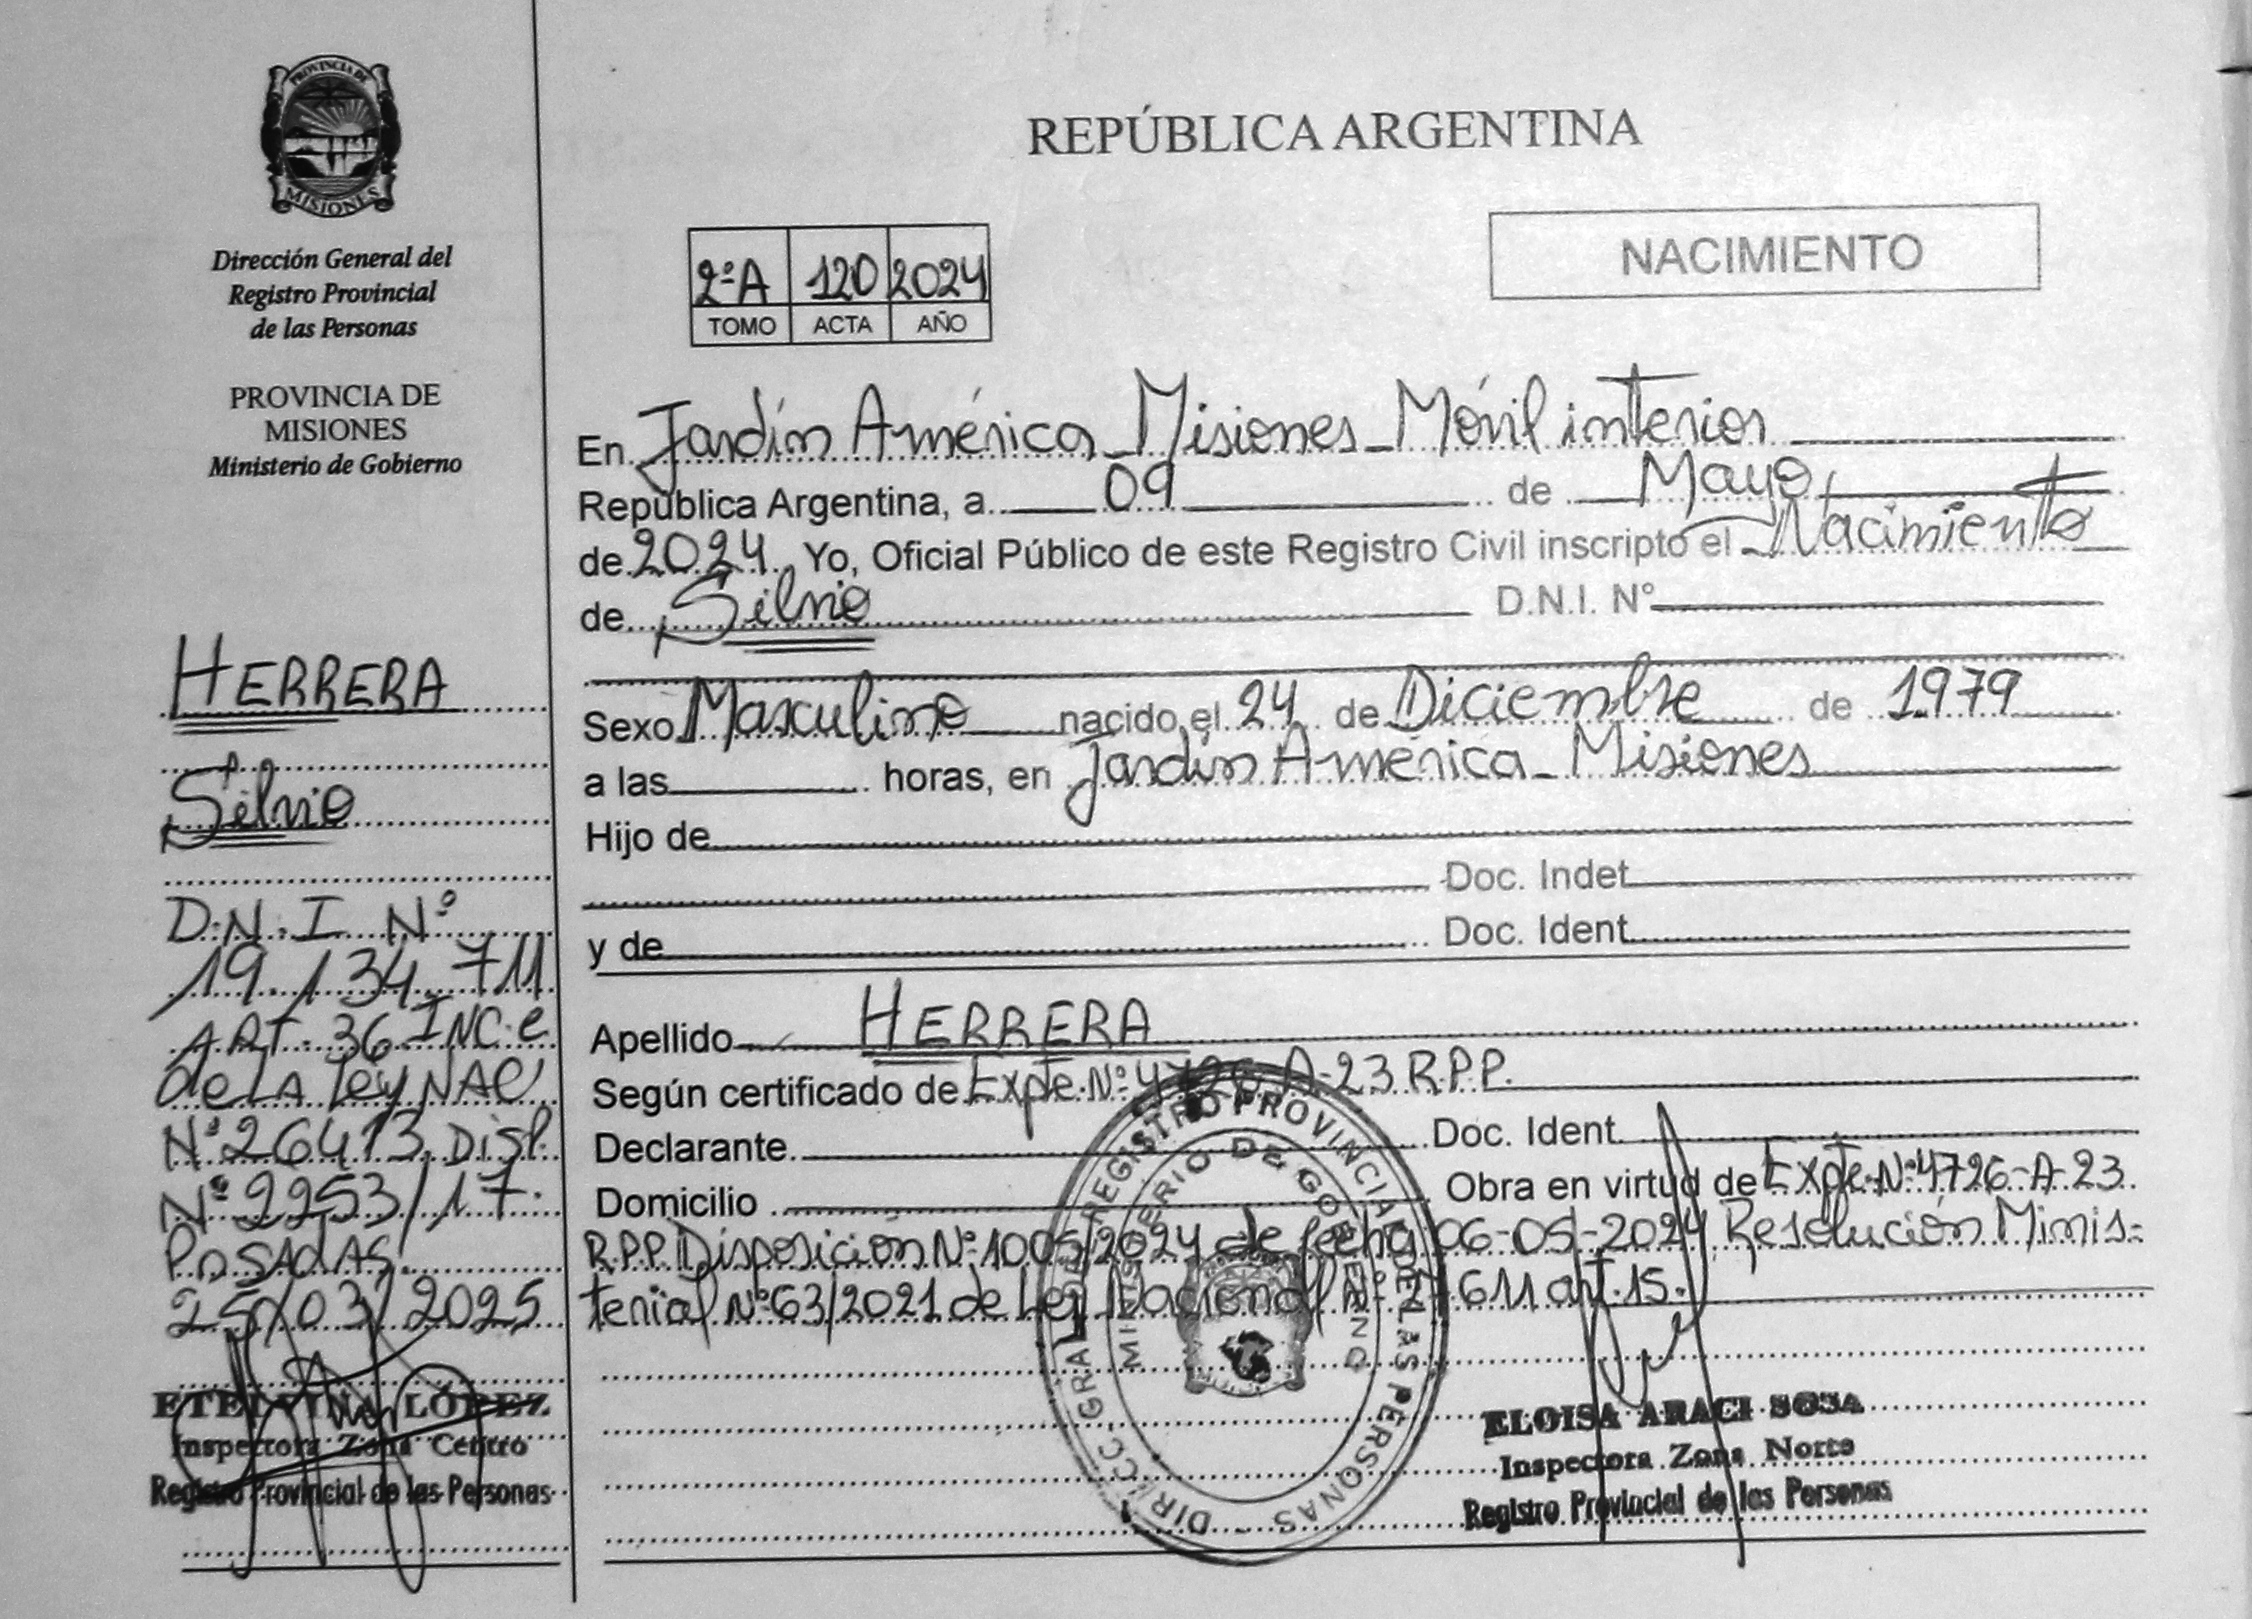 PROVINCIA DE
MISIONES
Dirección General del
Registro Provincial
de las Personas
PROVINCIA DE
MISIONES
Ministerio de Gobierno
HERRERA
Silvio
D.N.I. Nº
19.134.711
ART. 36 INC. e
de LA Ley NAC
Nº 26413. Disp.
Nº 2253/17.
POSADAS.
25/03/2025
ETELVINA LÓPEZ
Inspectora Zona Centro
Registro Provincial de las Personas
REPÚBLICA ARGENTINA
NACIMIENTO
2ºA 120 2024
TOMO ACTA AÑO
En Jardín América - Misiones - Móvil interior
República Argentina, a 09 de Mayo
de 2024 Yo, Oficial Público de este Registro Civil inscripto el Nacimiento
de Silvio D.N.I. Nº
Sexo Masculino nacido el 24 de Diciembre de 1979
a las horas, en Jardín América - Misiones
Hijo de
Doc. Indet
y de Doc. Ident.
Apellido HERRERA
Según certificado de Expte. Nº 4726-A-23 R.P.P.
Declarante Doc. Ident.
Domicilio Obra en virtud de Expte. Nº 4726-A-23
R.P.P. Disposición Nº 1005/2024 de fecha 06-05-2024 Resolución Minis-
terial Nº 63/2021 de Ley Nacional Nº 27.611 art. 15.
DIRECC. GRAL. DEL REGISTRO PROVINCIAL DE LAS PERSONAS
MINISTERIO DE GOBIERNO
ELOISA ARACI SOSA
Inspectora Zona Norte
Registro Provincial de las Personas